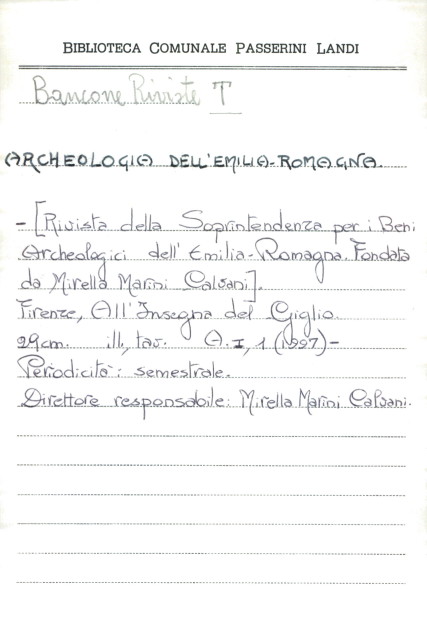 BIBLIOTECA COMUNALE PASSERINI LANDI
Bancone Riviste T
ARCHEOLOGIA DELL'EMILIA-ROMAGNA.
- [Rivista della Soprintendenza per i Beni
Archeologici dell'Emilia-Romagna. Fondata
da Mirella Marini Calvani].
Firenze, All'Insegna del Giglio.
29cm. ill., tav. A.I, 1 (1997)-
Periodicità: semestrale.
Direttore responsabile: Mirella Marini Calvani.